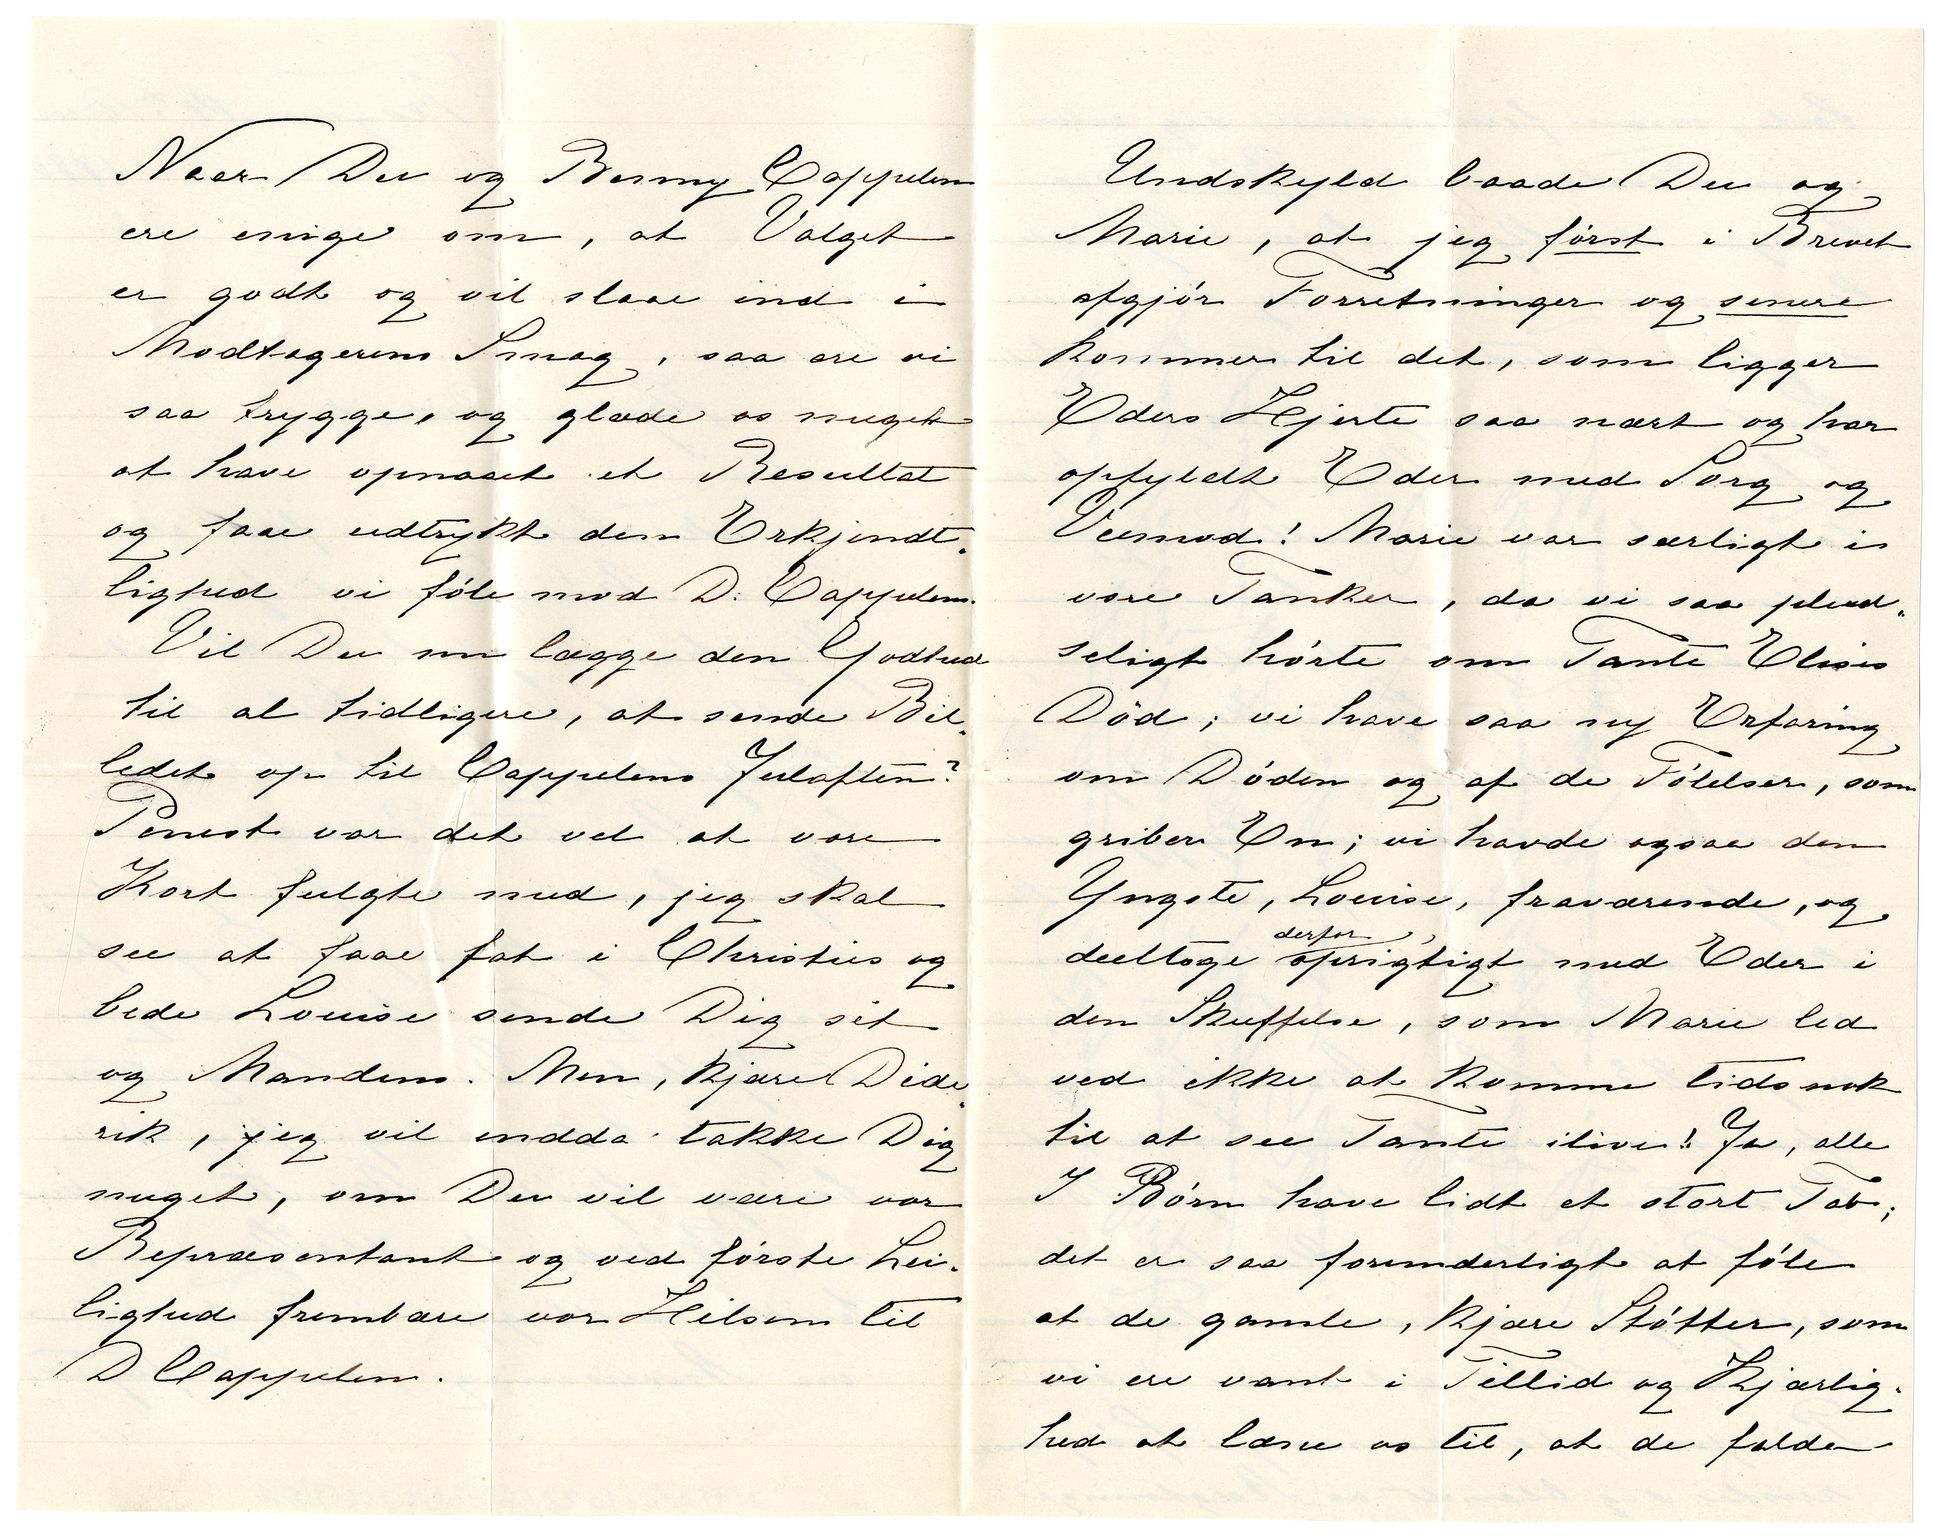 Naar Du og Benny Cappelen
ere enige om, at Valget
er godt og vil slaae ind i
Modtagerens Smag, saa ere vi
saa trygge, og glæde os meget
at have opnaaet et Resultat
og faae udtrykt den Erkjendt-
lighed vi føle mod D. Cappelen.
Vil Du nu lægge den Godhed
til al tidligere, at sende Bil-
ledet op til Cappelens Juleaften?
Penest var det vel at vore
Kort fulgte med, jeg skal
see at faae fat i Christies og
bede Louise sende Dig sit
og Mandens. Men, kjære Dide-
rik, jeg vil endda takke Dig
meget, om Du vil være vor
Repræsentant og ved første Lei-
lighed frembære vor Hilsen til
D Cappelen.
Undskyld baade Du og
Marie, at jeg først i Brevet
afgjør Forretninger og senere
kommer til det, som ligger
Eders Hjerte saa nært og har
opfyldt Eder med Sorg og
Veemod! Marie var særligt i
vore Tanker, da vi saa plud-
seligt hørte om Tante Elises
Død; vi have saa ny Erfaring
om Døden og af de Følelser, som
griber En; vi havde ogsaa den
Yngste, Louise, fraværende, og
deeltoge derfor oprigtigt med Eder i
den Skuffelse, som Marie led
ved ikke at komme tidsnok
til at see Tante ilive! Ja, alle
I Børn have lidt et stort Tab;
det er saa forunderligt at føle
at de gamle, kjære Støtter, som
vi ere vant i Tillid og Kjærlig-
hed at læne os til, at de falde